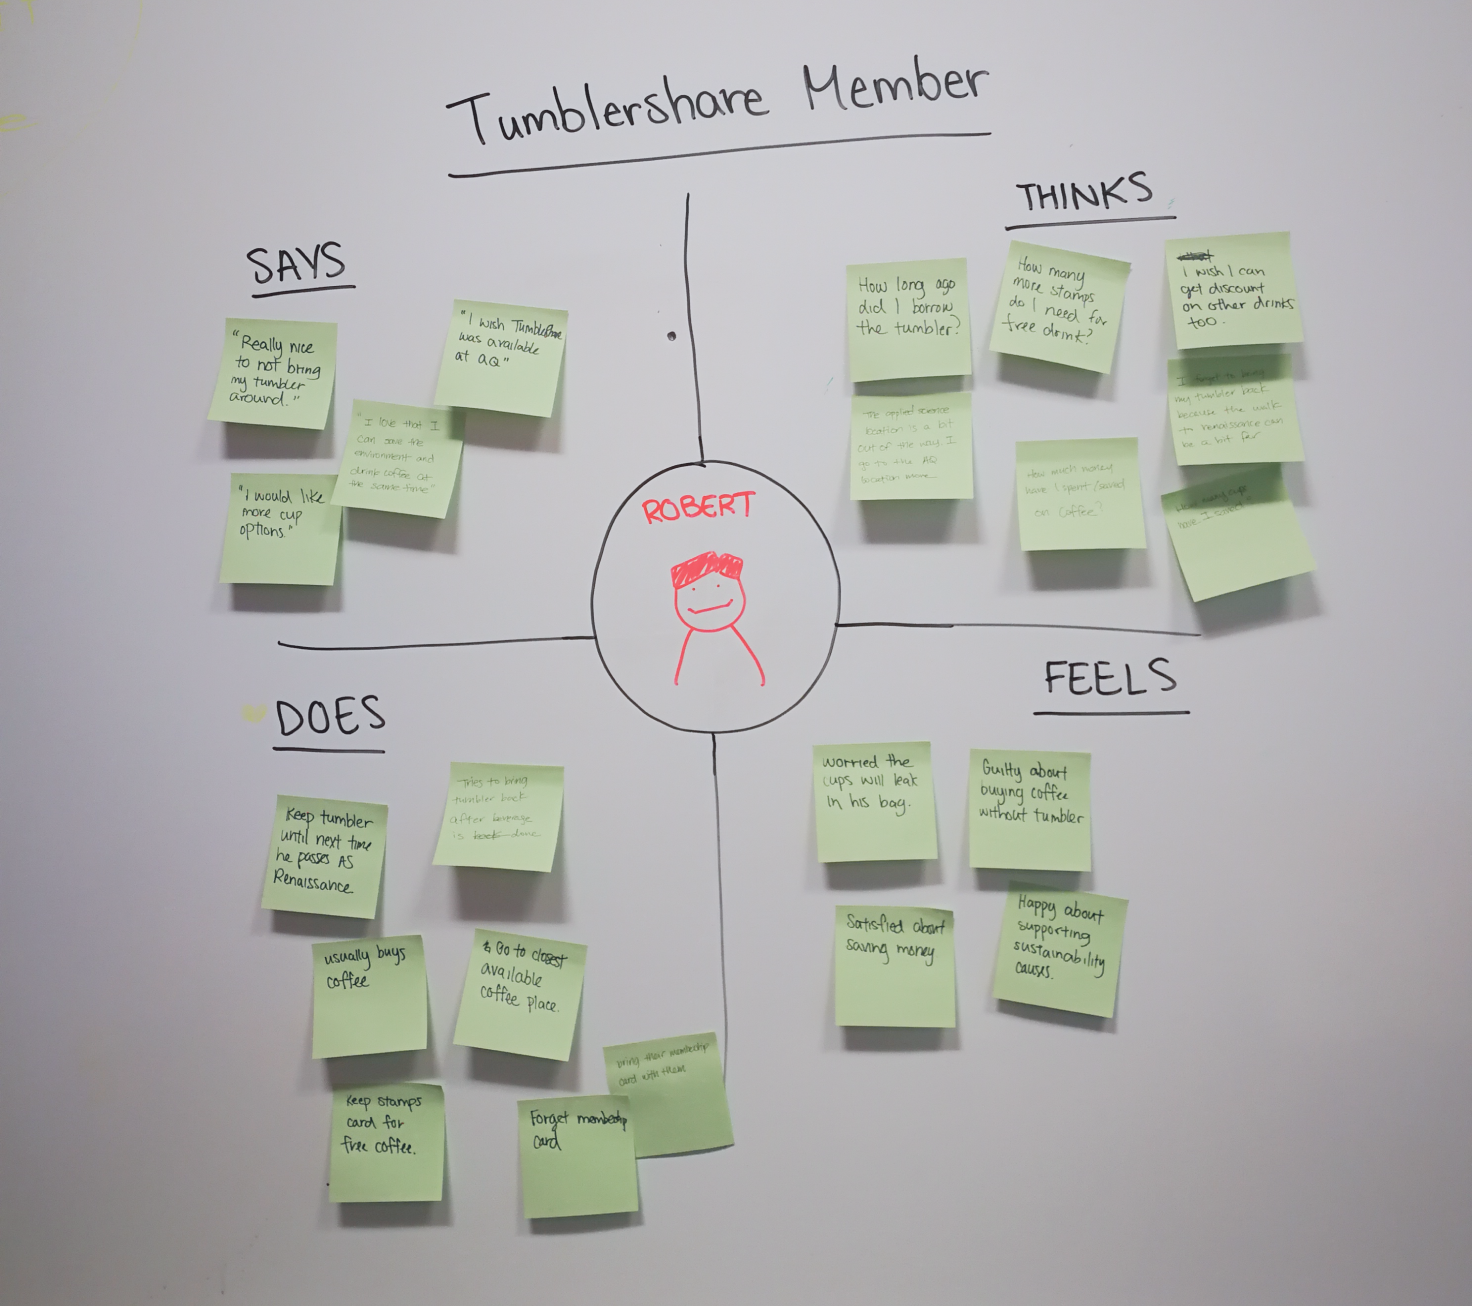 Tumblershare Member
SAYS
"Really nice
to not bring
my tumbler
around."
"I wish Tumbleshare
was available
at AQ"
"I love that I
can save the
environment and
drink coffee at
the same time"
"I would like
more cup
options."
THINKS
How long ago
did I borrow
the tumbler?
How many
more stamps
do I need for
free drink?
I wish I can
get discount
on other drinks
too.
The applied science
location is a bit
out of the way. I
go to the AQ
location more
How much money
have I spent/saved
on coffee?
I forget to bring
my tumbler back
because the walk
to renaissance can
be a bit far
How many cups
have I saved?
ROBERT
DOES
Keep tumbler
until next time
he passes AS
Renaissance
Tries to bring
tumbler back
after beverage
is done
usually buys
coffee
& Go to closest
available
coffee place.
Keep stamps
card for
free coffee.
Forget membership
card
bring their membership
card with them
FEELS
worried the
cups will leak
in his bag.
Guilty about
buying coffee
without tumbler
Satisfied about
saving money
Happy about
supporting
sustainability
causes.